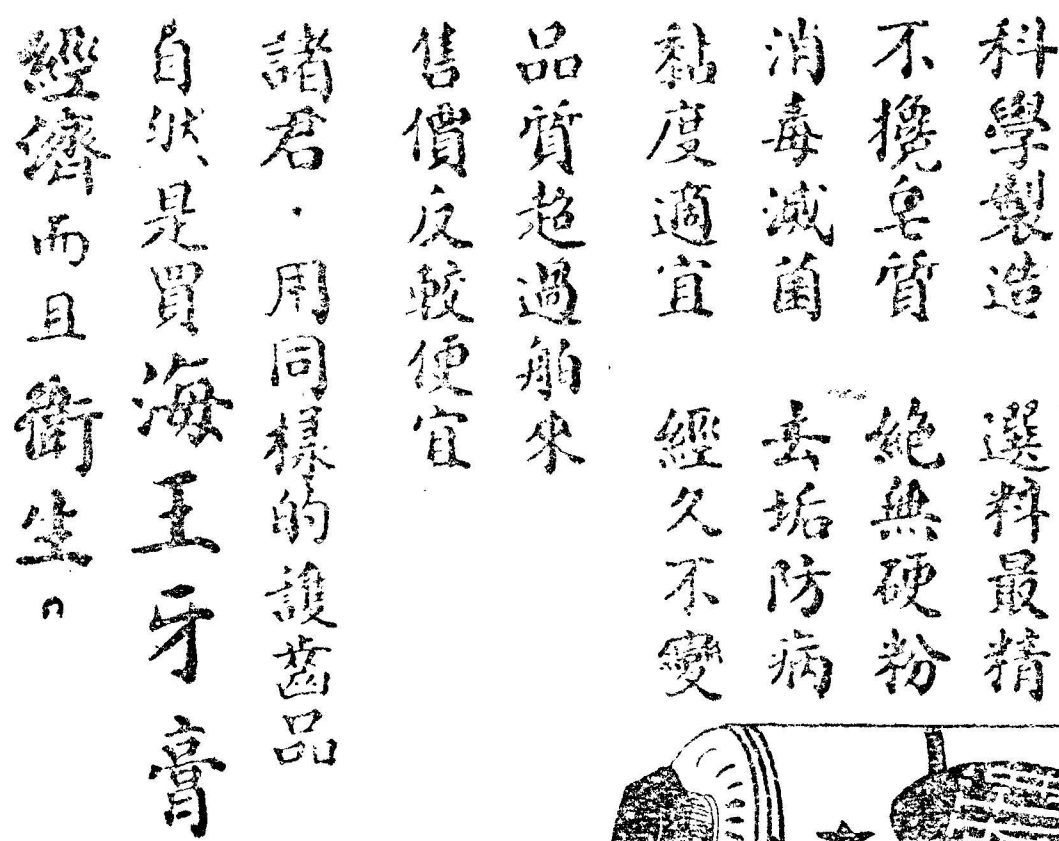 科學製造 選料最精
不攙皂質 絶無硬粉
消毒滅菌 去垢防病
黏度適宜 經久不變
品質超過舶來
售價反較便宜
諸君・用同樣的護齒品
自然是買海王牙膏
經濟而且衛生。